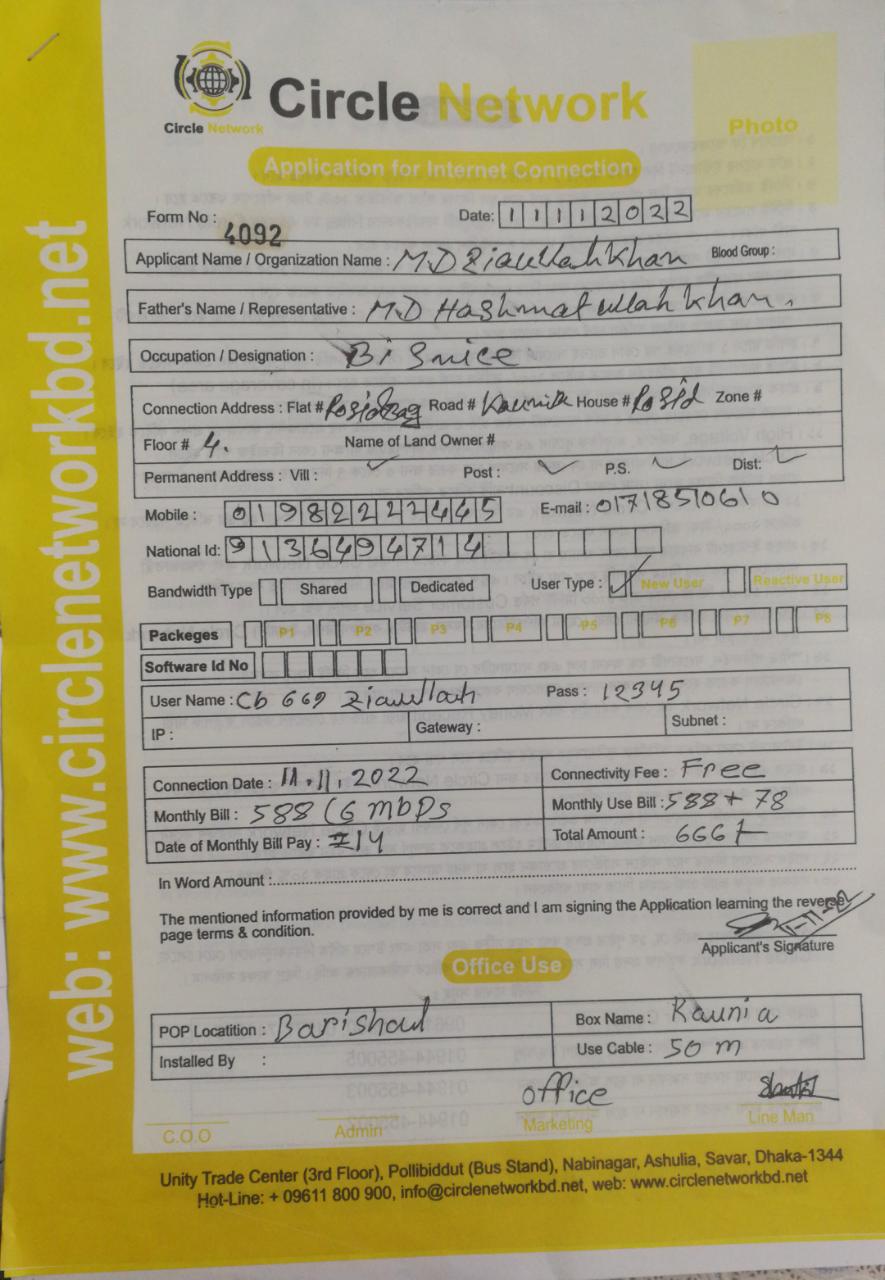 Circle Network
Circle Network
Photo
Application for Internet Connection
web: www.circlenetworkbd.net
Form No : 4092
Date: 11112022
Applicant Name / Organization Name : M.D Ziaullah Khan Blood Group :
Father's Name / Representative : M.D Hashmat ullah khan.
Occupation / Designation : Bisnice
Connection Address : Flat # Road # Kaunia House # Rosid Zone #
Floor # 4. Name of Land Owner #
Permanent Address : Vill : Post : P.S. Dist:
Mobile : 01982222445 E-mail : 01718510610
National Id: 9136494714
Bandwidth Type Shared Dedicated User Type : New User Reactive User
Packeges P1 P2 P3 P4 P5 P6 P7 P8
Software Id No
User Name : Cb 669 Ziaullah Pass : 12345
IP : Gateway : Subnet :
Connection Date : 11.11.2022 Connectivity Fee : Free
Monthly Bill : 588 (6 mbps Monthly Use Bill : 588 + 78
Date of Monthly Bill Pay : 14 Total Amount : 666/-
In Word Amount :
The mentioned information provided by me is correct and I am signing the Application learning the reverse
page terms & condition.
Applicant's Signature
Office Use
POP Locatition : Barishal Box Name : Kaunia
Installed By : Use Cable : 50 m
office
C.O.O Admin Marketing Line Man
Unity Trade Center (3rd Floor), Pollibiddut (Bus Stand), Nabinagar, Ashulia, Savar, Dhaka-1344
Hot-Line: + 09611 800 900, info@circlenetworkbd.net, web: www.circlenetworkbd.net